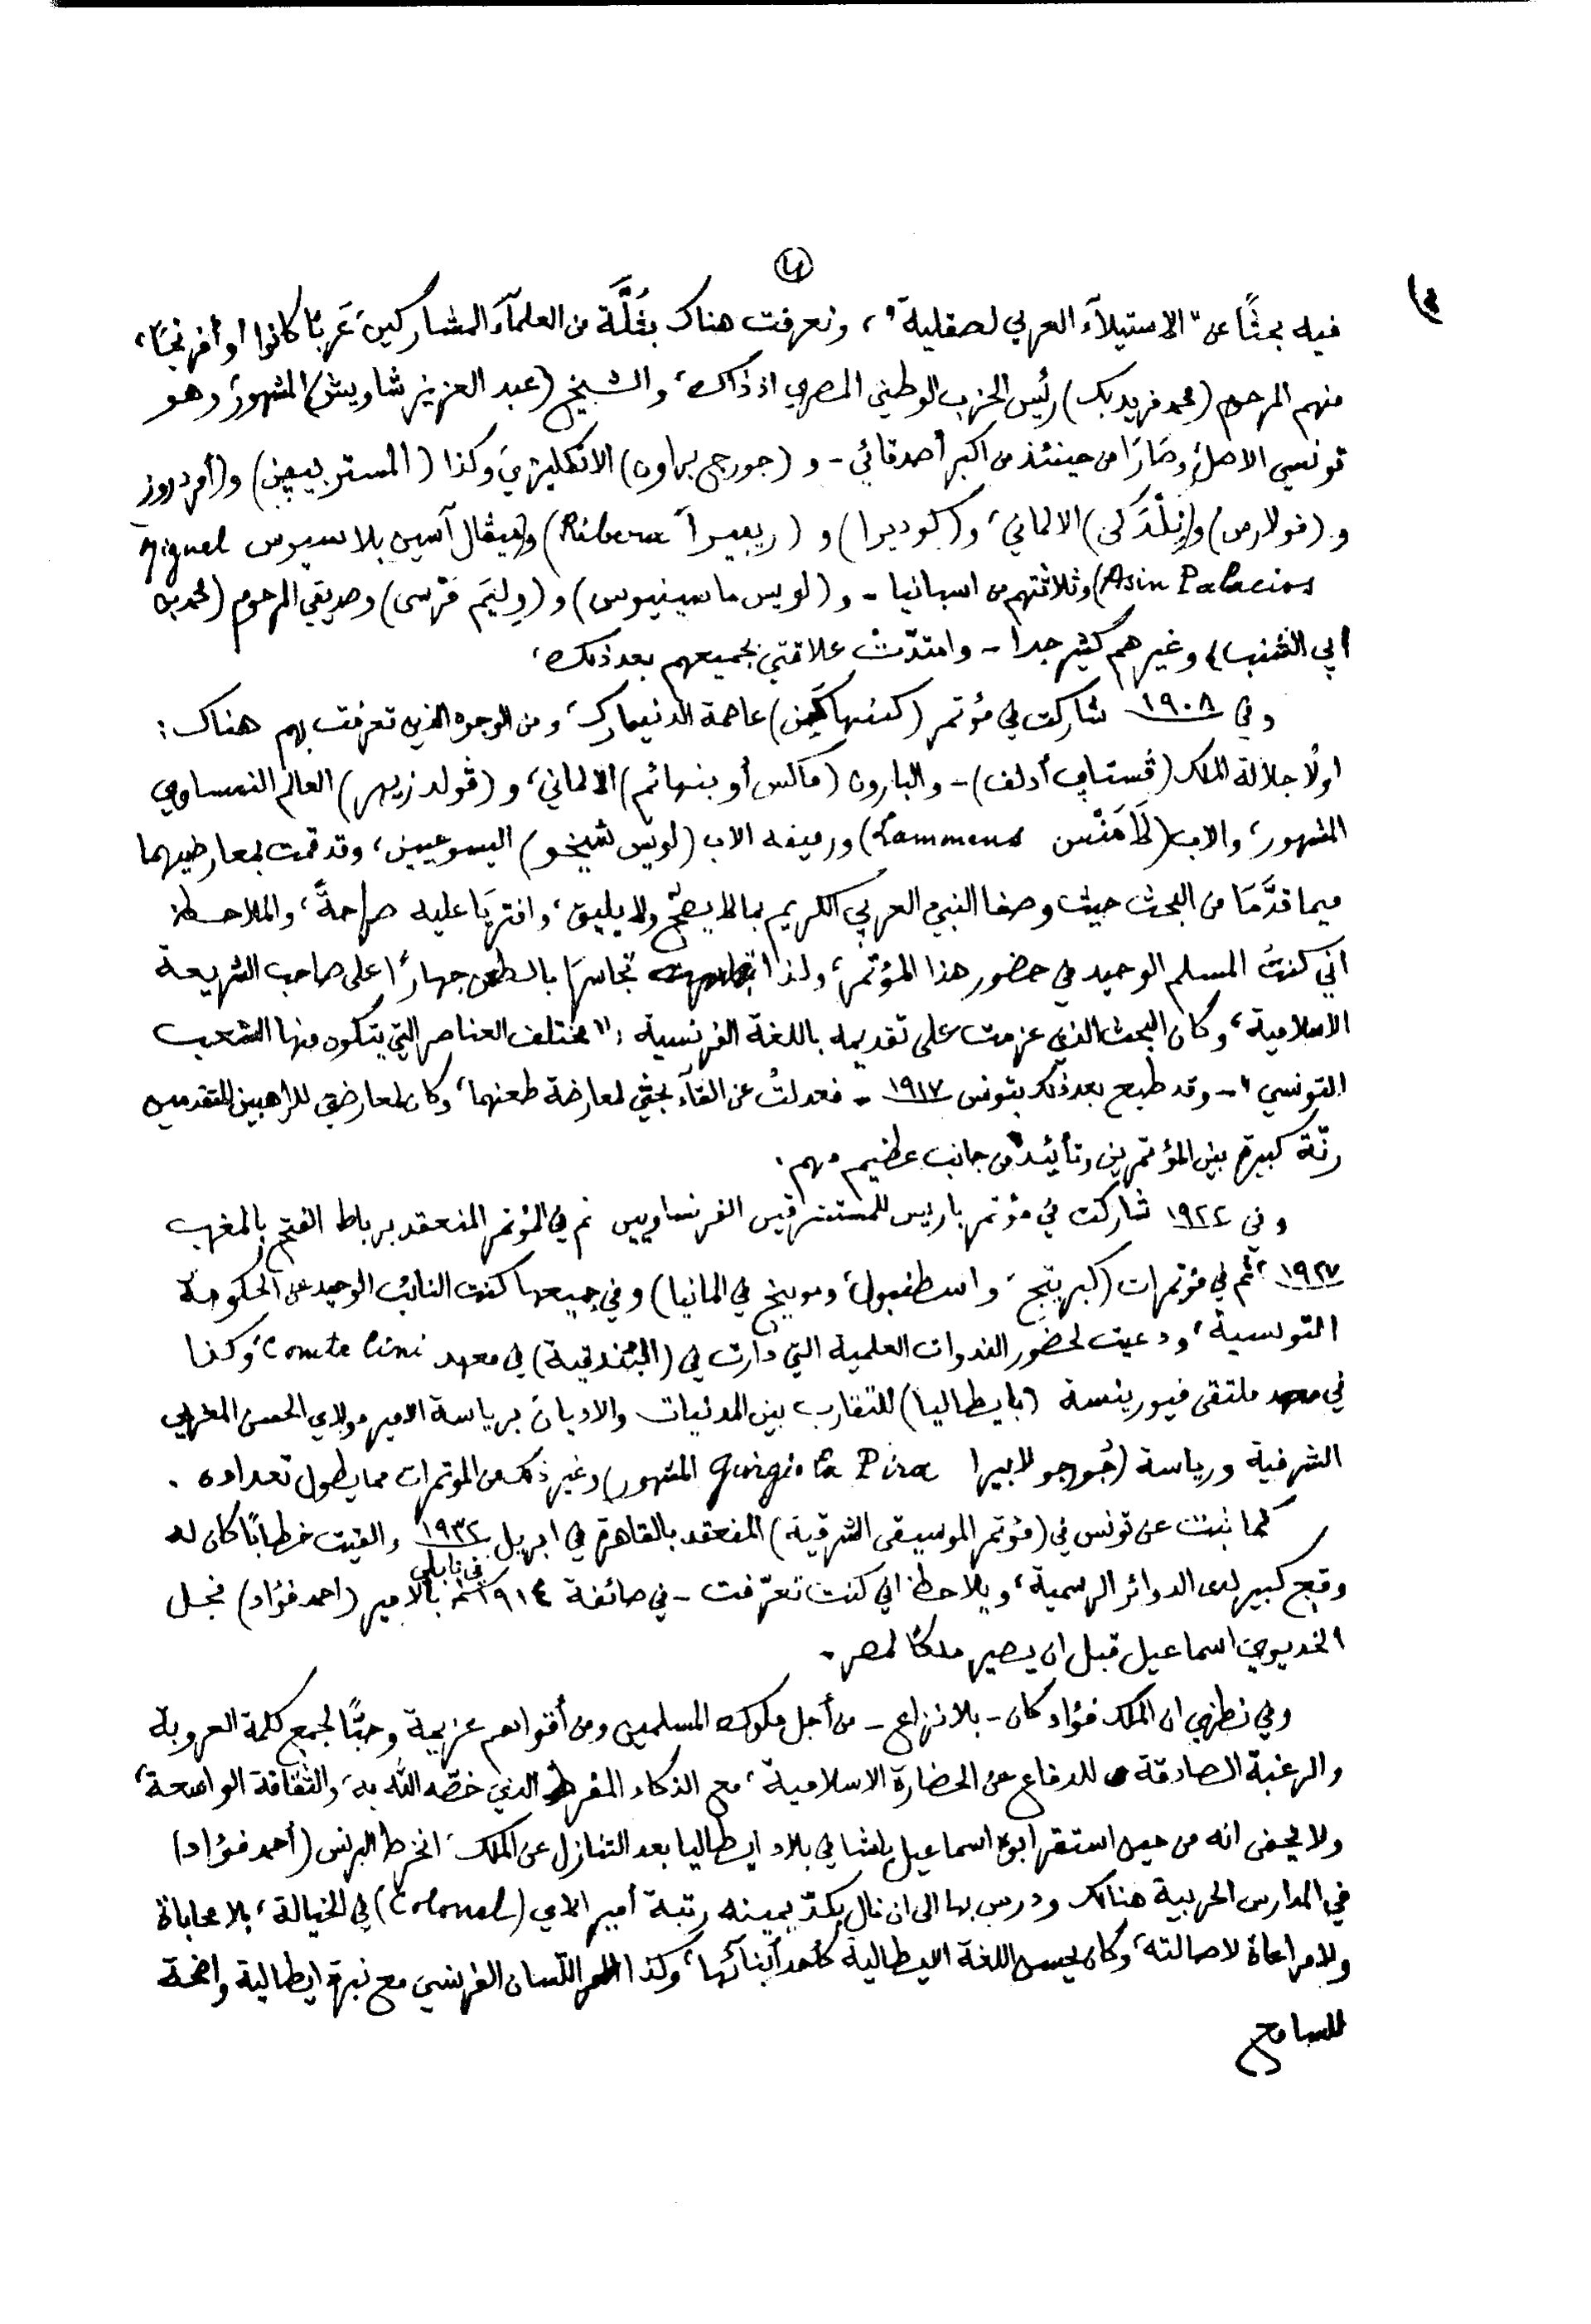 فيه بحثًا عن "الاستيلآء العربي لصقلية"، وتعرفت هناك بثُلَّة من العلمآء المشاركين، عَربًا كانوا أو أفرنجًا،
منهم المرحوم (محمد فريد بك) رئيس الحزب الوطني المصري اذ ذاك، والشيخ (عبد العزيز شاويش) المشهور، وهو
تونسي الاصل، وصَارَا من حينئذ من أكبر أصدقائي - و (جورج براون) الانكليزي، وكذا (المستر بيفن) و(أمدروز
و (فولارس) و(نِلْدَكى) الالماني، و(كوديرا) و (ريبيرآ Ribera) و(ميڤال آسين بلاسيوس Miguel
Asin Palacios) وثلاثتهم من اسبانيا - و (لويس ماسينيوس) و (وِليَم مَرْسى) وصديقي المرحوم (محمد بن
أبي الشنب) وغيرهم كثير جدا - وامتدّتْ علاقتي بجميعهم بعد ذلك،
وفي ١٩٠٨ شاركت في مؤتمر (كنبهاكَن) عاصمة الدنيمارك، ومن الوجوه الذين تعرّفت بهم هناك:
اولًا جلالة الملك (ڤستاڢ أدلف) - والبارون (ماكس أوبنهائم) الالماني، و (ڤولدزيهر) العالم النمساوي
المشهور، والاب (لَامَنْس Lammens) ورفيقه الاب (لويس شيخو) اليسوعيين، وقد قمت بمعارضيهما
فيما قدَّمَا من البحث حيث وصفا النبي العربي الكريم بما لا يصحّ ولا يليق، وافتريَا عليه صراحةً، والملاحظ
اني كنتُ المسلم الوحيد في حضور هذا المؤتمر، ولذا تجاسرَا بالطعن جهارًا على صاحب الشريعة
الاسلامية، وكان البحث الذي عزمت على تقديمه باللغة الفرنسية: "مختلف العناصر التي يتكون منها الشعب
التونسي" - وقد طبع بعد ذلك بتونس ١٩١٧ - فعدلتُ عن القآء بحثي لمعارضة طعنهما، وكان لمعارضتي للراهبين المتقدمين
رنّة كبيرة بين المؤتمرين وتأييد من جانب عظيم منهم.
وفي ١٩٢٢ شاركت في مؤتمر باريس للمستشرقين الفرنساويين ثم في المؤتمر المنعقد برباط الفتح بالمغرب
١٩٢٧، ثم في مؤتمرات (كبريتج، واسطنبول، ومونيخ في المانيا) وفي جميعها كنت النائب الوحيد عن الحكومة
التونسية، ودعيت لحضور الندوات العلمية التي دارت في (البُندقية) في معهد Comte Cini، وكذا
في ملتقى فيورينسة (بايطاليا) للتقارب بين المدنيات والاديان برياسة الامير مولاي الحسن المغربي
الشرفية ورياسة (جُورجو لابيرا Giorgio La Pira المشهور) وغير ذلك من المؤتمرات مما يطول تعداده.
كما نبت عن تونس في (مؤتمر الموسيقى الشرقية) المنعقد بالقاهرة في ابريل ١٩٣٢ والقيت خطابًا كان له
في نابلي
وقع كبير لدى الدوائر الرسمية، ويلاحظ اني كنت تعرّفت - في صائفة ١٩١٤ بالامير (احمد فؤاد) نجل
الخديوي اسماعيل قبل ان يصير ملكًا لمصر.
وفي نظري ان الملك فؤاد كان - بلا نزاع - من أجل ملوك المسلمين ومن أقواهم عزيمة وحبًّا لجمع كلمة العروبة
والرغبة الصادقة للدفاع عن الحضارة الاسلامية، مع الذكاء المفرط الذي خصّه الله به، والثقافة الواسعة،
ولا يخفى انه من حين استقر ابوه اسماعيل باشا في بلاد ايطاليا بعد التنازل عن الملك، انخرط البرنس (أحمد فؤاد)
في المدارس الحربية هنالك ودرس بها الى ان نال بكدّ يمينه رتبة أمير الاي (Colonel) في الخيالة، بلا محاباة
ولا مراعاة لاصالته، وكان يحسن اللغة الايطالية كأحد أبنائها، وكذا اللّسان الفرنسي مع نبرة ايطالية واضحة
للسامع